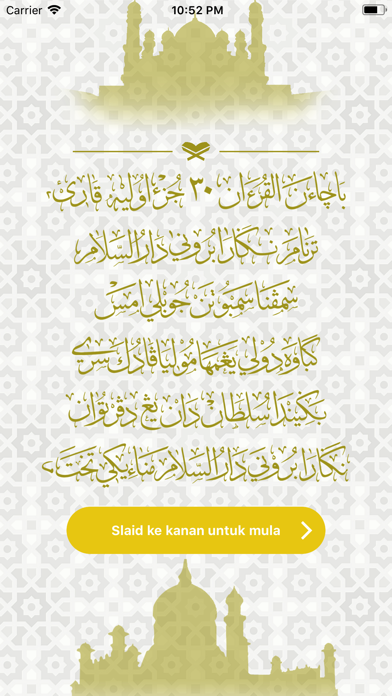 Carrier 10:52 PM
باچاءن القرءان ٣٠ جزء اوليه قارئ٢
ترنام نݢارا بروني دارالسلام
سمڤنا سمبوتن جوبلي امس
کباوه دولي يڠمها موليا ڤادوک سري
بݢيندا سلطان دان يڠ دڤرتوان
نݢارا بروني دارالسلام مناءيکي تخت
Slaid ke kanan untuk mula